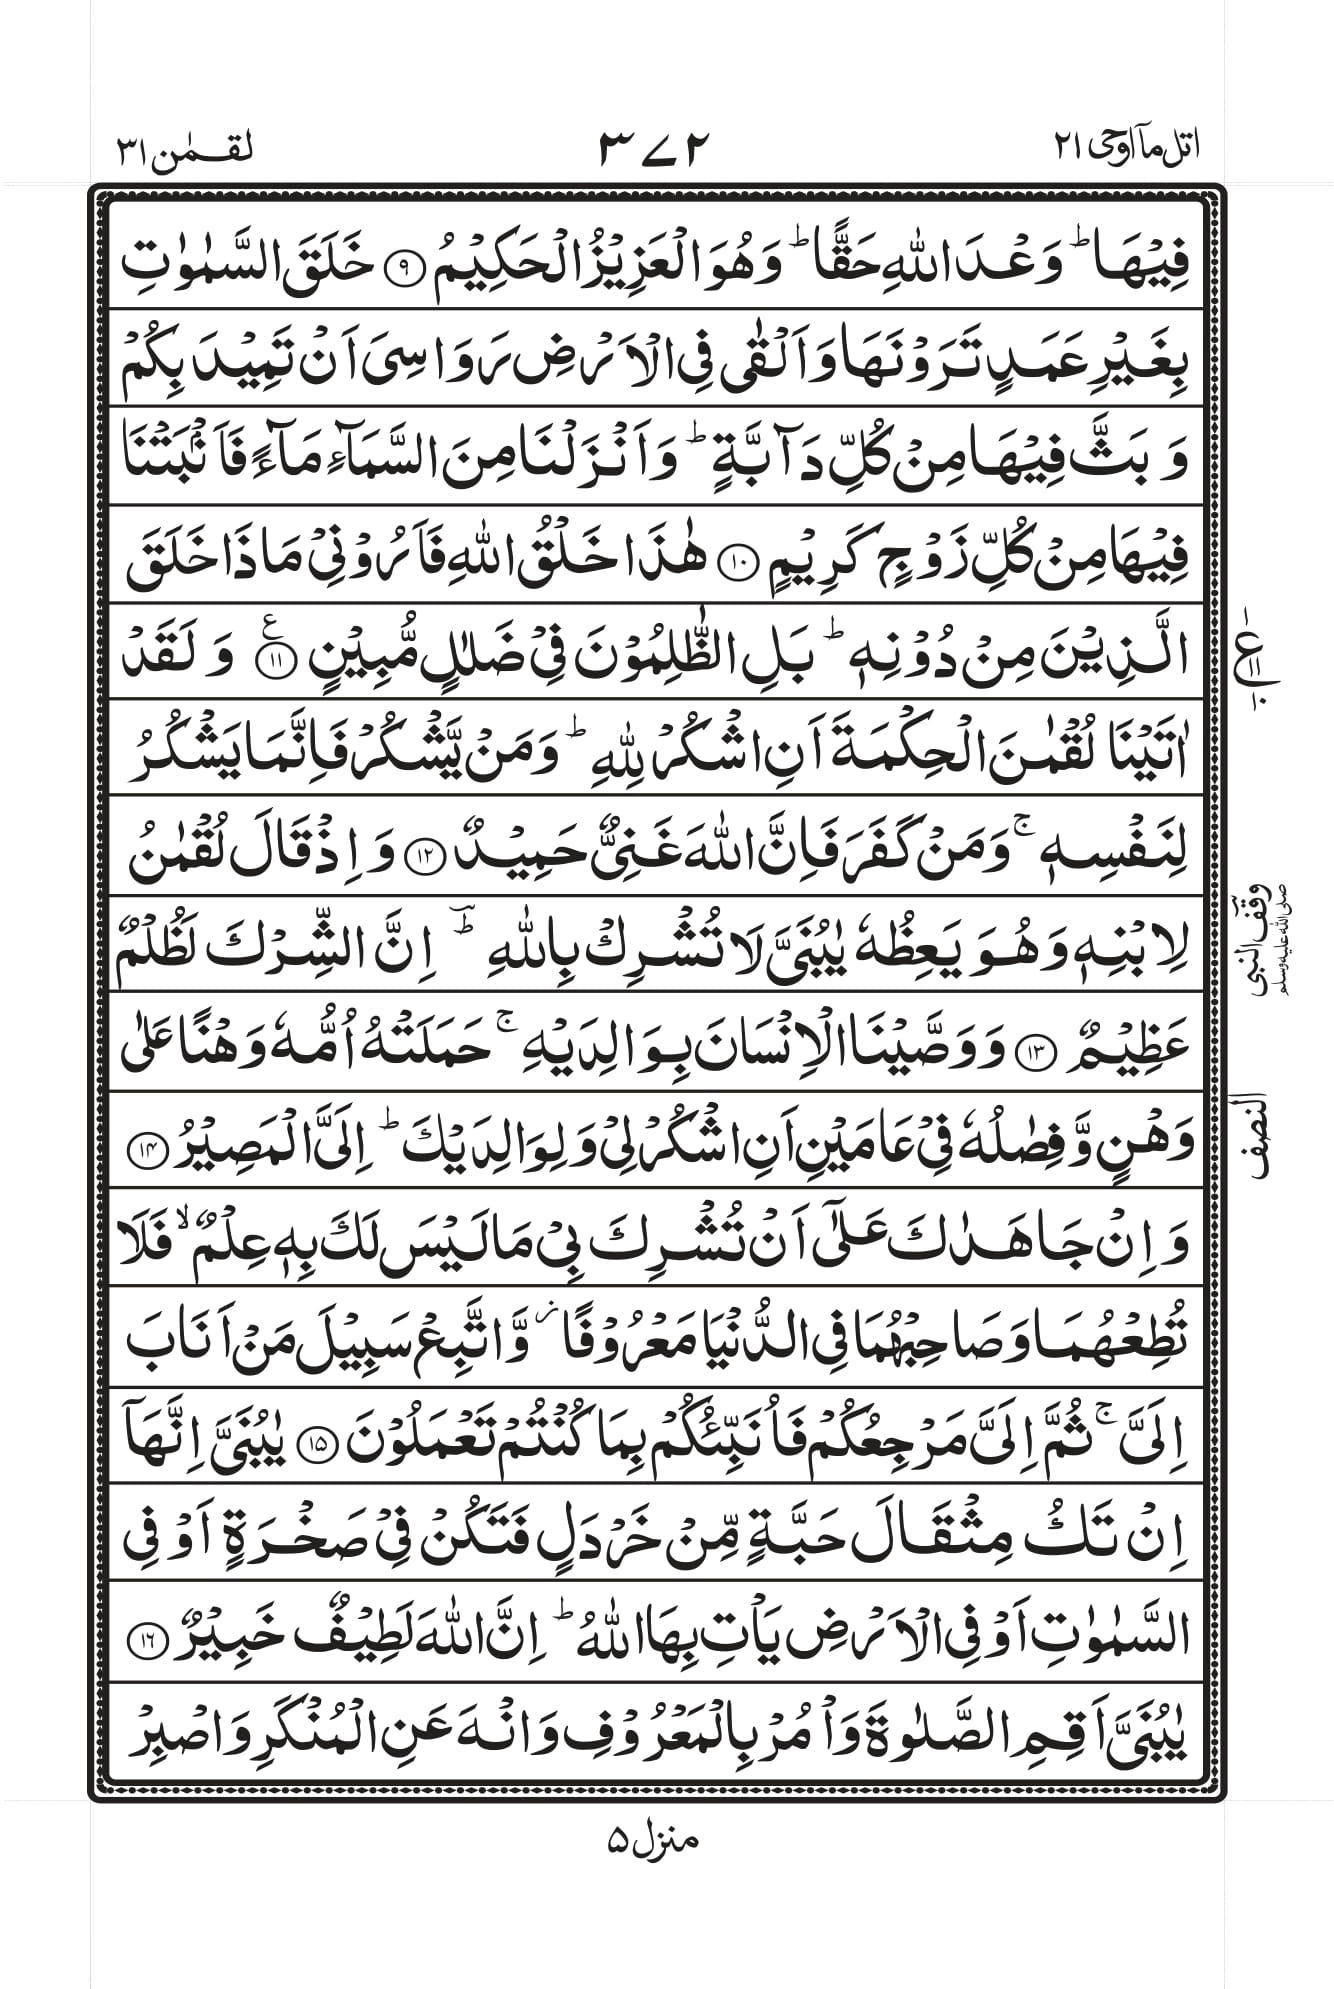 اتل مآ اوحی ۲۱
۳۷۲
لقمٰن ۳۱
فِیْهَا ؕ وَعْدَ اللّٰهِ حَقًّا ؕ وَهُوَ الْعَزِیْزُ الْحَكِیْمُ ۹ خَلَقَ السَّمٰوٰتِ
بِغَیْرِ عَمَدٍ تَرَوْنَهَا وَاَلْقٰی فِی الْاَرْضِ رَوَاسِیَ اَنْ تَمِیْدَ بِكُمْ
وَ بَثَّ فِیْهَا مِنْ كُلِّ دَآبَّةٍ ؕ وَاَنْزَلْنَا مِنَ السَّمَآءِ مَآءً فَاَنْۢبَتْنَا
فِیْهَا مِنْ كُلِّ زَوْجٍ كَرِیْمٍ ۱۰ هٰذَا خَلْقُ اللّٰهِ فَاَرُوْنِیْ مَاذَا خَلَقَ
الَّذِیْنَ مِنْ دُوْنِهٖ ؕ بَلِ الظّٰلِمُوْنَ فِیْ ضَلٰلٍ مُّبِیْنٍ ۱۱ ع وَ لَقَدْ
اٰتَیْنَا لُقْمٰنَ الْحِكْمَةَ اَنِ اشْكُرْ لِلّٰهِ ؕ وَمَنْ یَّشْكُرْ فَاِنَّمَا یَشْكُرُ
لِنَفْسِهٖ ۚ وَمَنْ كَفَرَ فَاِنَّ اللّٰهَ غَنِیٌّ حَمِیْدٌ ۱۲ وَ اِذْ قَالَ لُقْمٰنُ
لِابْنِهٖ وَهُوَ یَعِظُهٗ یٰبُنَیَّ لَا تُشْرِكْ بِاللّٰهِ ؕ اِنَّ الشِّرْكَ لَظُلْمٌ
عَظِیْمٌ ۱۳ وَوَصَّیْنَا الْاِنْسَانَ بِوَالِدَیْهِ ۚ حَمَلَتْهُ اُمُّهٗ وَهْنًا عَلٰی
وَهْنٍ وَّفِصٰلُهٗ فِیْ عَامَیْنِ اَنِ اشْكُرْ لِیْ وَلِوَالِدَیْكَ ؕ اِلَیَّ الْمَصِیْرُ ۱۴
وَ اِنْ جَاهَدٰكَ عَلٰۤی اَنْ تُشْرِكَ بِیْ مَا لَیْسَ لَكَ بِهٖ عِلْمٌ ۙ فَلَا
تُطِعْهُمَا وَصَاحِبْهُمَا فِی الدُّنْیَا مَعْرُوْفًا ؗ وَّاتَّبِعْ سَبِیْلَ مَنْ اَنَابَ
اِلَیَّ ۚ ثُمَّ اِلَیَّ مَرْجِعُكُمْ فَاُنَبِّئُكُمْ بِمَا كُنْتُمْ تَعْمَلُوْنَ ۱۵ یٰبُنَیَّ اِنَّهَاۤ
اِنْ تَكُ مِثْقَالَ حَبَّةٍ مِّنْ خَرْدَلٍ فَتَكُنْ فِیْ صَخْرَةٍ اَوْ فِی
السَّمٰوٰتِ اَوْ فِی الْاَرْضِ یَاْتِ بِهَا اللّٰهُ ؕ اِنَّ اللّٰهَ لَطِیْفٌ خَبِیْرٌ ۱۶
یٰبُنَیَّ اَقِمِ الصَّلٰوةَ وَاْمُرْ بِالْمَعْرُوْفِ وَانْهَ عَنِ الْمُنْكَرِ وَاصْبِرْ
ع ۱۱ ۱۰
وقف النبی صلی الله علیه وسلم
النصف
منزل ۵